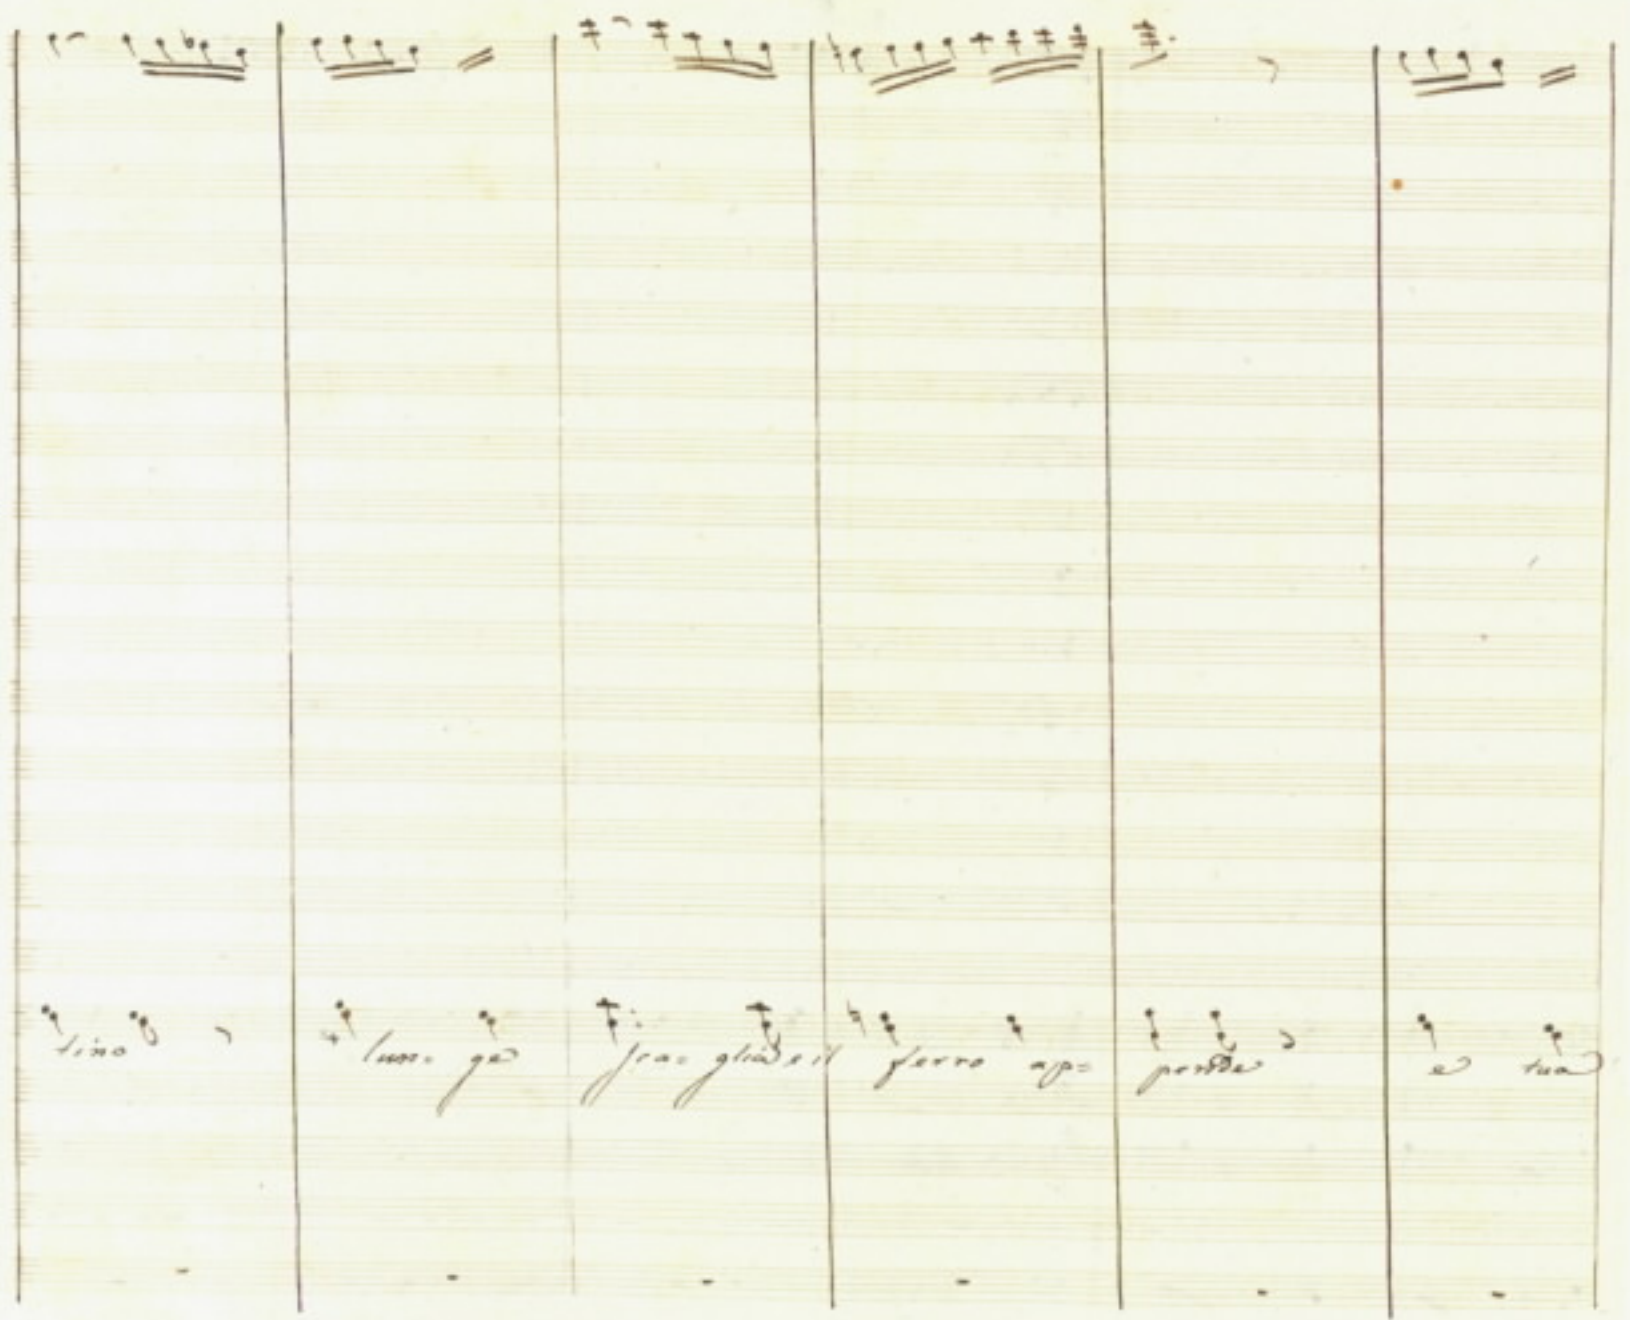 tino lun= ge sca= glia e il ferro ap= pende e tua